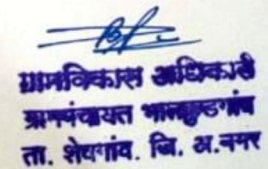 ग्रामविकास अधिकारी
ग्रामपंचायत भालगुडगांव
ता. शेवगांव. जि. अ.नगर